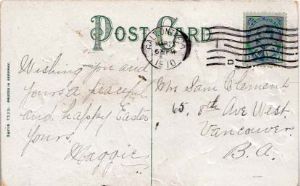 POST CARD
Wishing you and
yours a peaceful
and happy Easter
Yours,
Maggie
Mrs Sam Clement
65. 8th Ave West.
Vancouver
B.A.